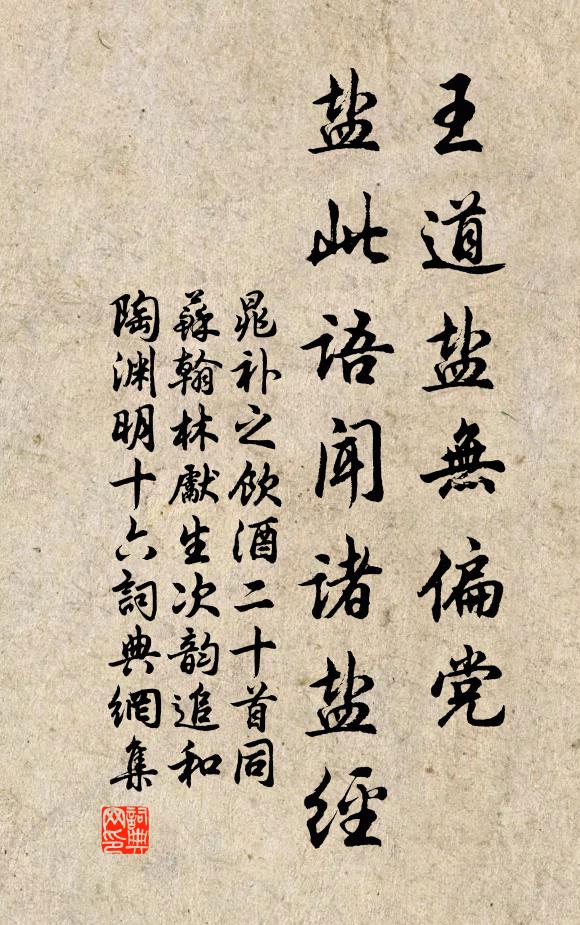 王道盐無偏党
盐此語聞诸盐經
晁补之飲酒二十首同
蘇翰林獻生次韵追和
陶渊明十六詞典網集
詞典网印